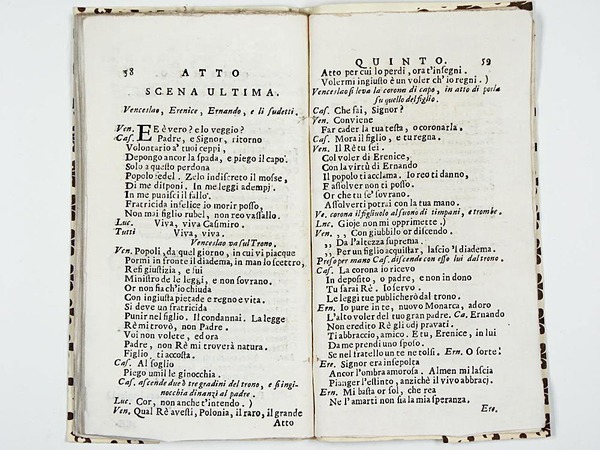 58 ATTO
SCENA ULTIMA.
Venceslao, Erenice, Ernando, e li sudetti.
Ven. E E è vero? e lo veggio?
Cas. Padre, e Signor, ritorno
Volontario a' tuoi ceppi,
Depongo ancor la spada, e piego il capo.
Solo a quello perdona
Popolo fedel. Zelo indiscreto il mosse,
Di me disponi. In me leggi adempj.
In me punisci il fallo.
Fratricida infelice io morir posso,
Non mai figlio rubel, non reo vassallo.
Luc. Viva, viva Casimiro.
Tutti Viva, viva.
Venceslao va sul Trono.
Ven. Popoli, da quel giorno, in cui vi piacque
Pormi in fronte il diadema, in man lo scettro,
Resi giustizia, e fui
Ministro de le leggi, e non sovrano.
Or non fia ch'io chiuda
Con ingiusta pietade e regno e vita.
Si deve un fratricida
Punir nel figlio. Il condannai. La legge
Rè mi trovò, non Padre.
Voi non volete, ed ora
Padre, non Rè mi troverà natura.
Figlio, ti accosta.
Cas. Al soglio
Piego umil le ginocchia.
Cas. ascende due ò tre gradini del trono, e s'ingi-
nocchia dinanzi al padre.
Luc. Cor, non anche t'intendo. )
Ven. Qual Rè avesti, Polonia, il raro, il grande
Atto
QUINTO. 59
Atto per cui lo perdi, ora t'insegni.
Volermi ingiusto è un voler ch'io regni. )
Venceslao si leva la corona di capo, in atto di porla
su quello del figlio.
Cas. Che fai, Signor?
Ven. Conviene
Far cader la tua testa, o coronarla.
Cas. Mora il figlio, e tu regna.
Ven. Il Rè tu sei.
Col voler di Erenice,
Con la virtù di Ernando
Il popolo ti acclama. Io reo ti danno,
E assolver non ti posso.
Or che tu se' sovrano.
Assolverti potrai con la tua mano.
Ve. corona il figliuolo al suono di timpani, e trombe.
Luc. Gioje non mi opprimette. )
Ven. ,, Con giubbilo or discendo.
,, Da l'altezza suprema.
,, Per un figlio acquistar, lascio 'l diadema.
Preso per mano Cas. discende con esso lui dal trono.
Cas. La corona io ricevo
In deposito, o padre, e non in dono
Tu sarai Rè. Io servo.
Le leggi tue publicherò dal trono.
Ern. Io pure in te, nuovo Monarca, adoro
L'alto voler del tuo gran padre. Ca. Ernando
Non eredito Rè gli odj pravati.
Ti abbraccio, amico. E tu, Erenice, in lui
Da me prendi uno sposo.
Se nel fratello un te ne tolsi. Ern. O sorte!
Ere. Signor era insepolta
Ancor l'ombra amorosa. Almen mi lascia
Pianger l'estinto, anzichè il vivo abbracj.
Ern. Mi basta or sol, che rea
Ne l'amarti non sia la mia speranza.
Ere.